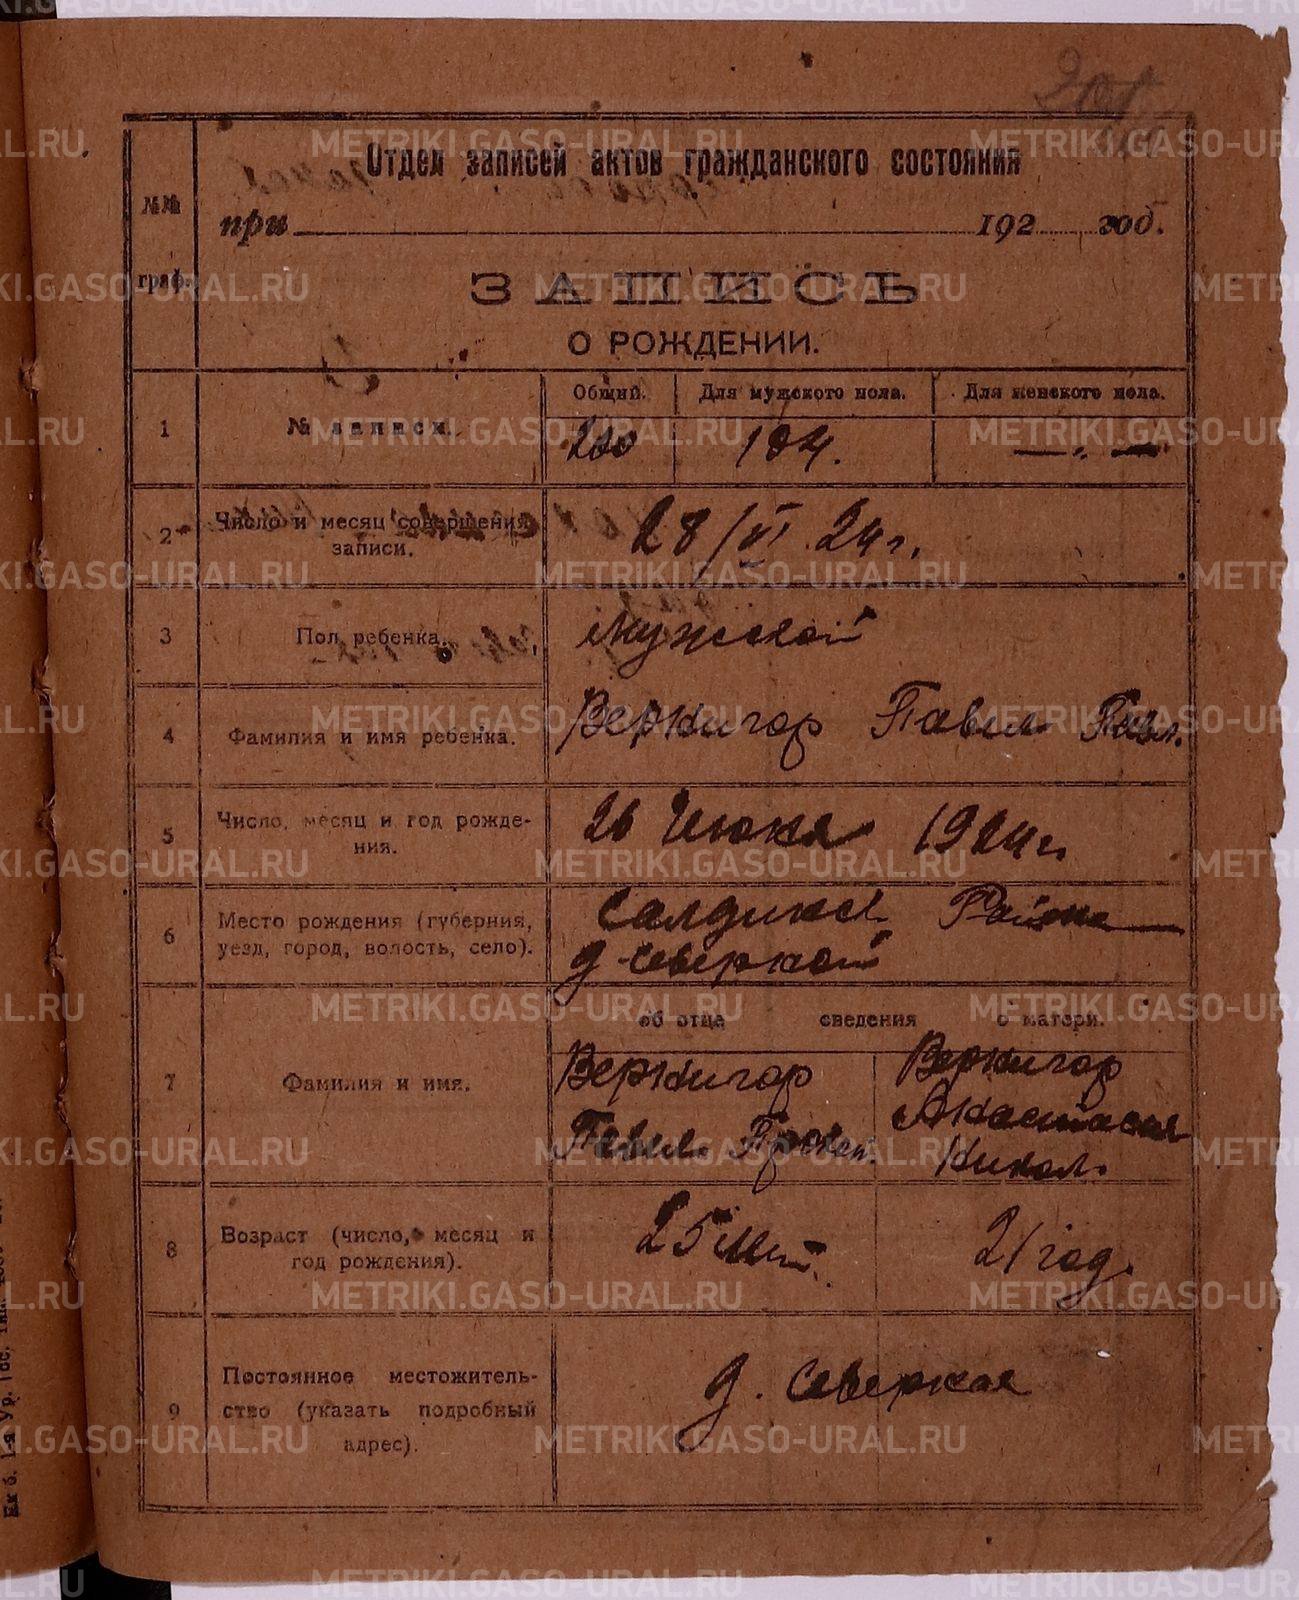 Отдел записей актов гражданского состояния
№№
при 192 год.
граф.
ЗАПИСЬ
О РОЖДЕНИИ.
Общий. Для мужского пола. Для женского пола.
1 № записи. 200 104. —"—
2 Число и месяц совершения
записи. 28/VI 24 г.
3 Пол ребенка. мужской
4 Фамилия и имя ребенка. Веркигор Павел Павл.
5 Число, месяц и год рожде-
ния. 26 Июня 1924 г.
6 Место рождения (губерния,
уезд, город, волость, село).
Района
д. Северной
об отце сведения о матери.
7 Фамилия и имя.
Веркигор Веркигор
Павел Прокоп. Анастасия
Никол.
8 Возраст (число, месяц и
год рождения). 25 лет. 21 год.
9 Постоянное местожитель-
ство (указать подробный
адрес). д. Северная
METRIKI.GASO-URAL.RU